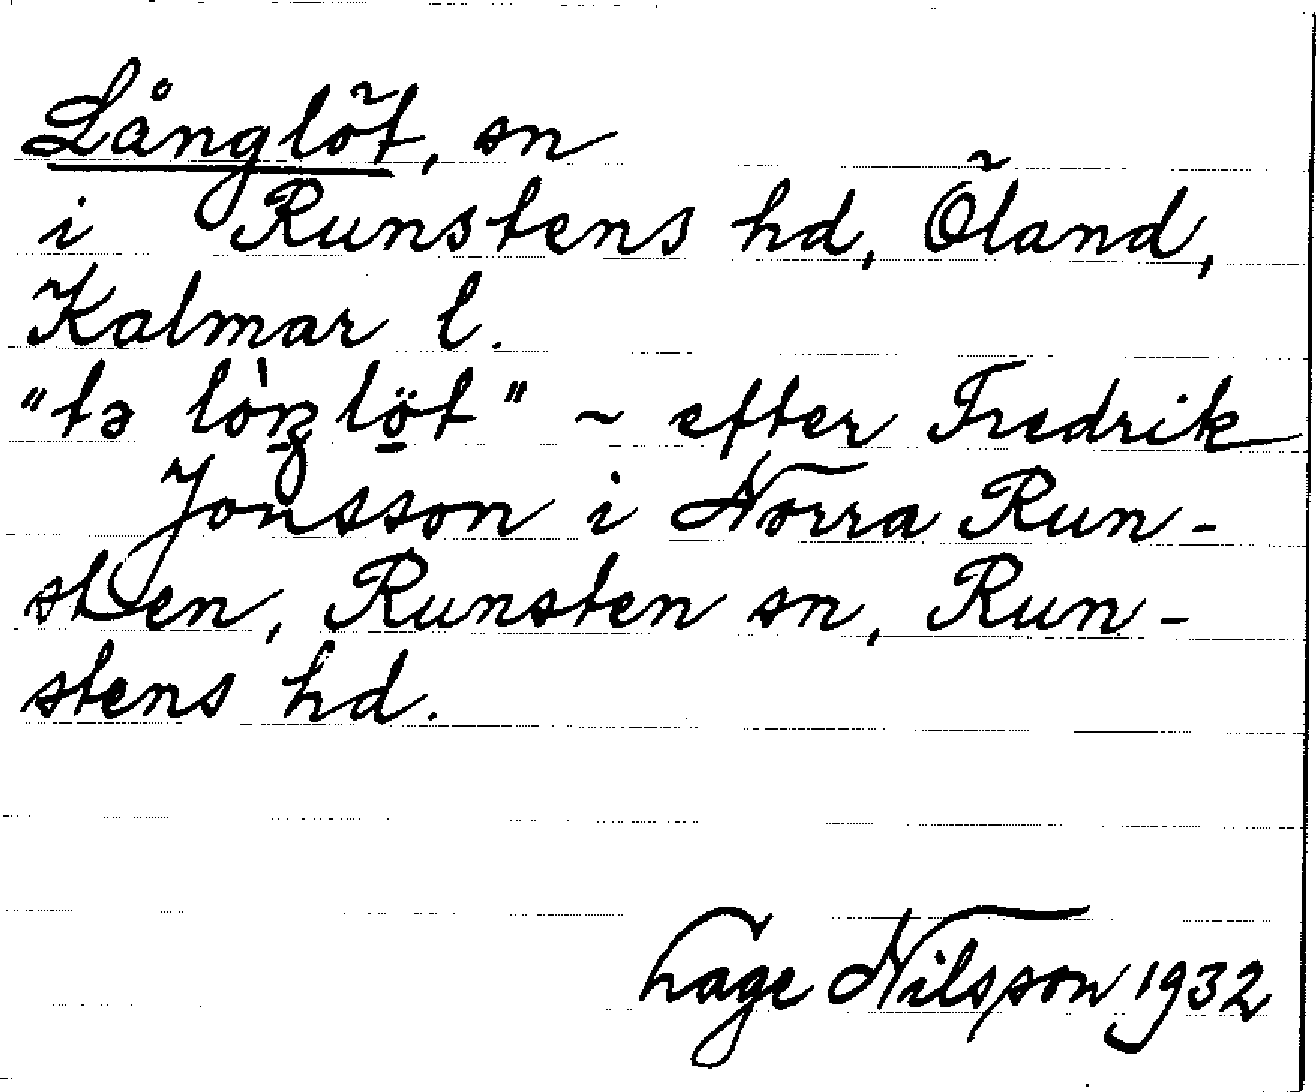 Långlöt, sn
i Runstens hd, Öland,
Kalmar l.
"tə lòŋlö̱t" ~ efter Fredrik
Jonsson i Norra Run-
sten, Runsten sn, Run-
stens hd.
Hage Nilsson 1932